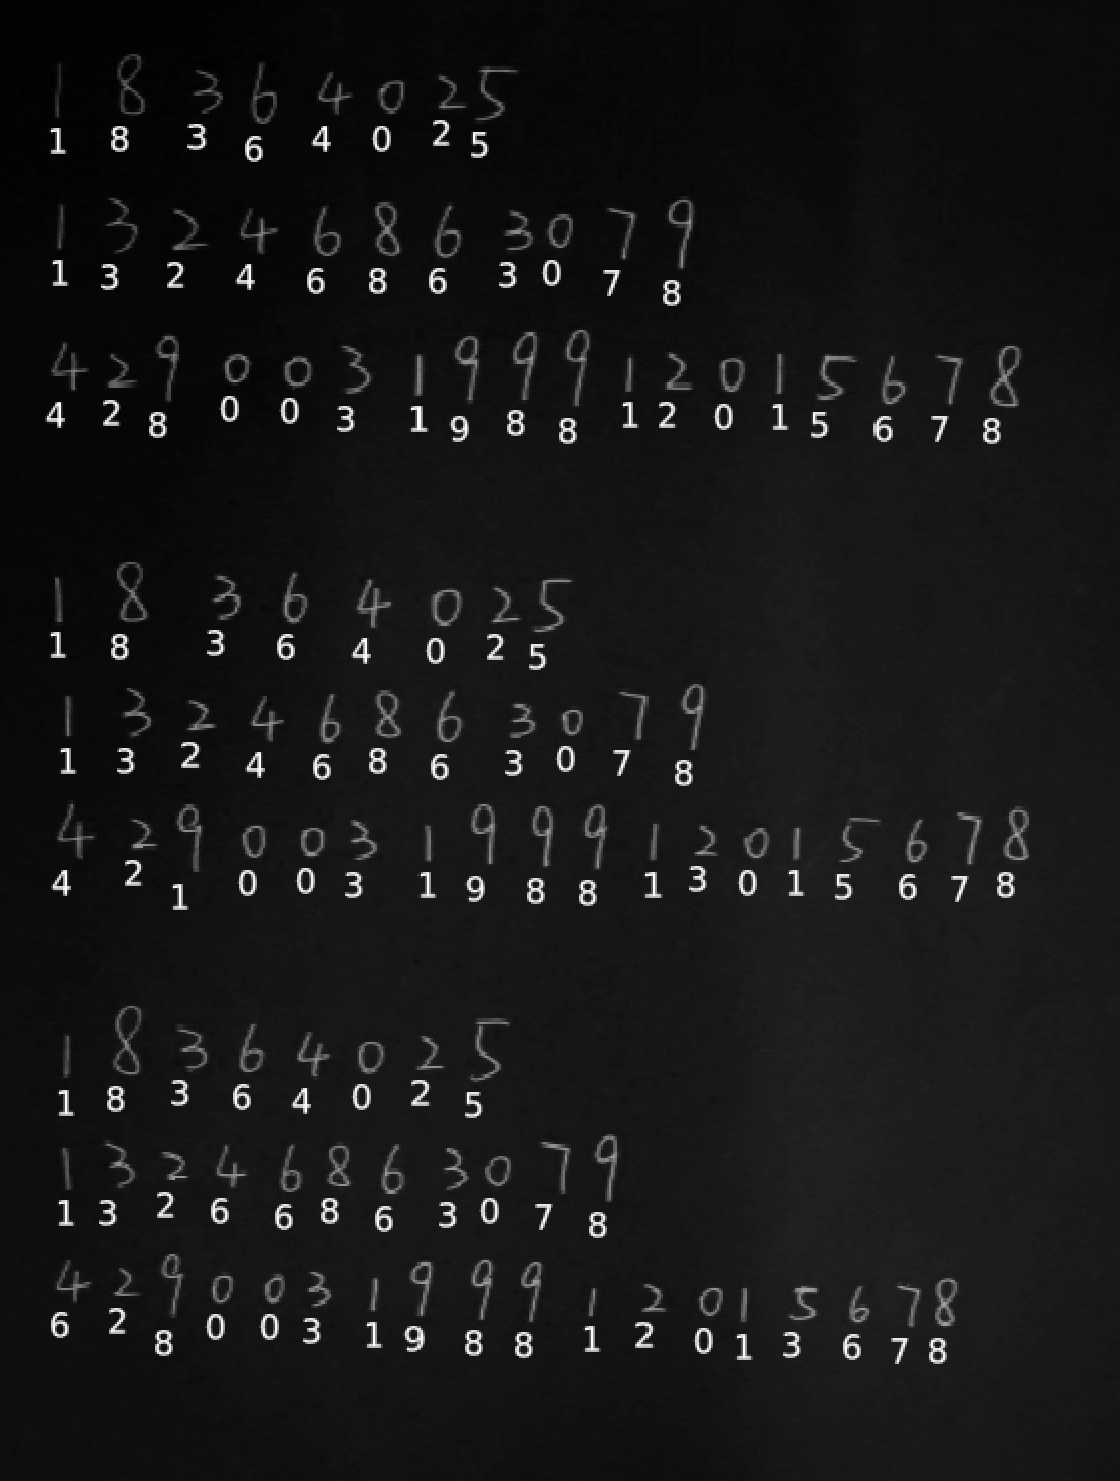 1 8 3 6 4 0 2 5
1 8 3 6 4 0 2 5
1 3 2 4 6 8 6 3 0 7 9
1 3 2 4 6 8 6 3 0 7 8
4 2 9 0 0 3 1 9 9 9 1 2 0 1 5 6 7 8
4 2 8 0 0 3 1 9 8 8 1 2 0 1 5 6 7 8
1 8 3 6 4 0 2 5
1 8 3 6 4 0 2 5
1 3 2 4 6 8 6 3 0 7 9
1 3 2 4 6 8 6 3 0 7 8
4 2 9 0 0 3 1 9 9 9 1 2 0 1 5 6 7 8
4 2 1 0 0 3 1 9 8 8 1 3 0 1 5 6 7 8
1 8 3 6 4 0 2 5
1 8 3 6 4 0 2 5
1 3 2 4 6 8 6 3 0 7 9
1 3 2 6 6 8 6 3 0 7 8
4 2 9 0 0 3 1 9 9 9 1 2 0 1 5 6 7 8
6 2 8 0 0 3 1 9 8 8 1 2 0 1 3 6 7 8